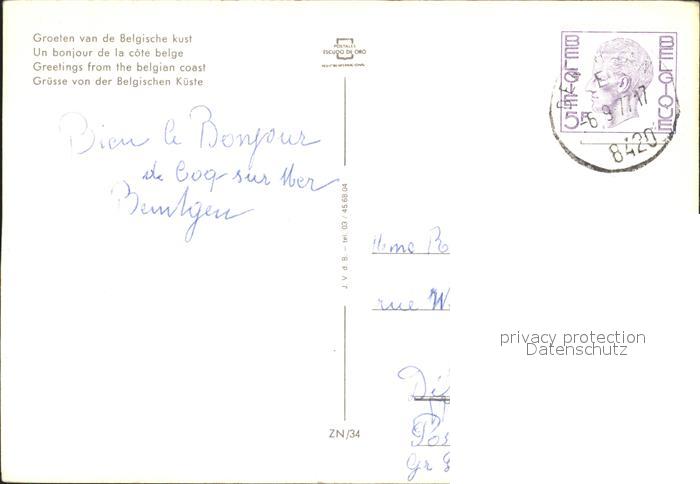 Groeten van de Belgische kust
Un bonjour de la côte belge
Greetings from the belgian coast
Grüsse von der Belgischen Küste
POSTALES
ESCUDO DE ORO
BELGIE BELGIQUE
5F
-6 9 77 17
8420
Bien le Bonjour
de Coq sur Mer
J. V. d. B. – tel. 03 / 45.68.04
Mme
rue
privacy protection
Datenschutz
ZN/34
Gr